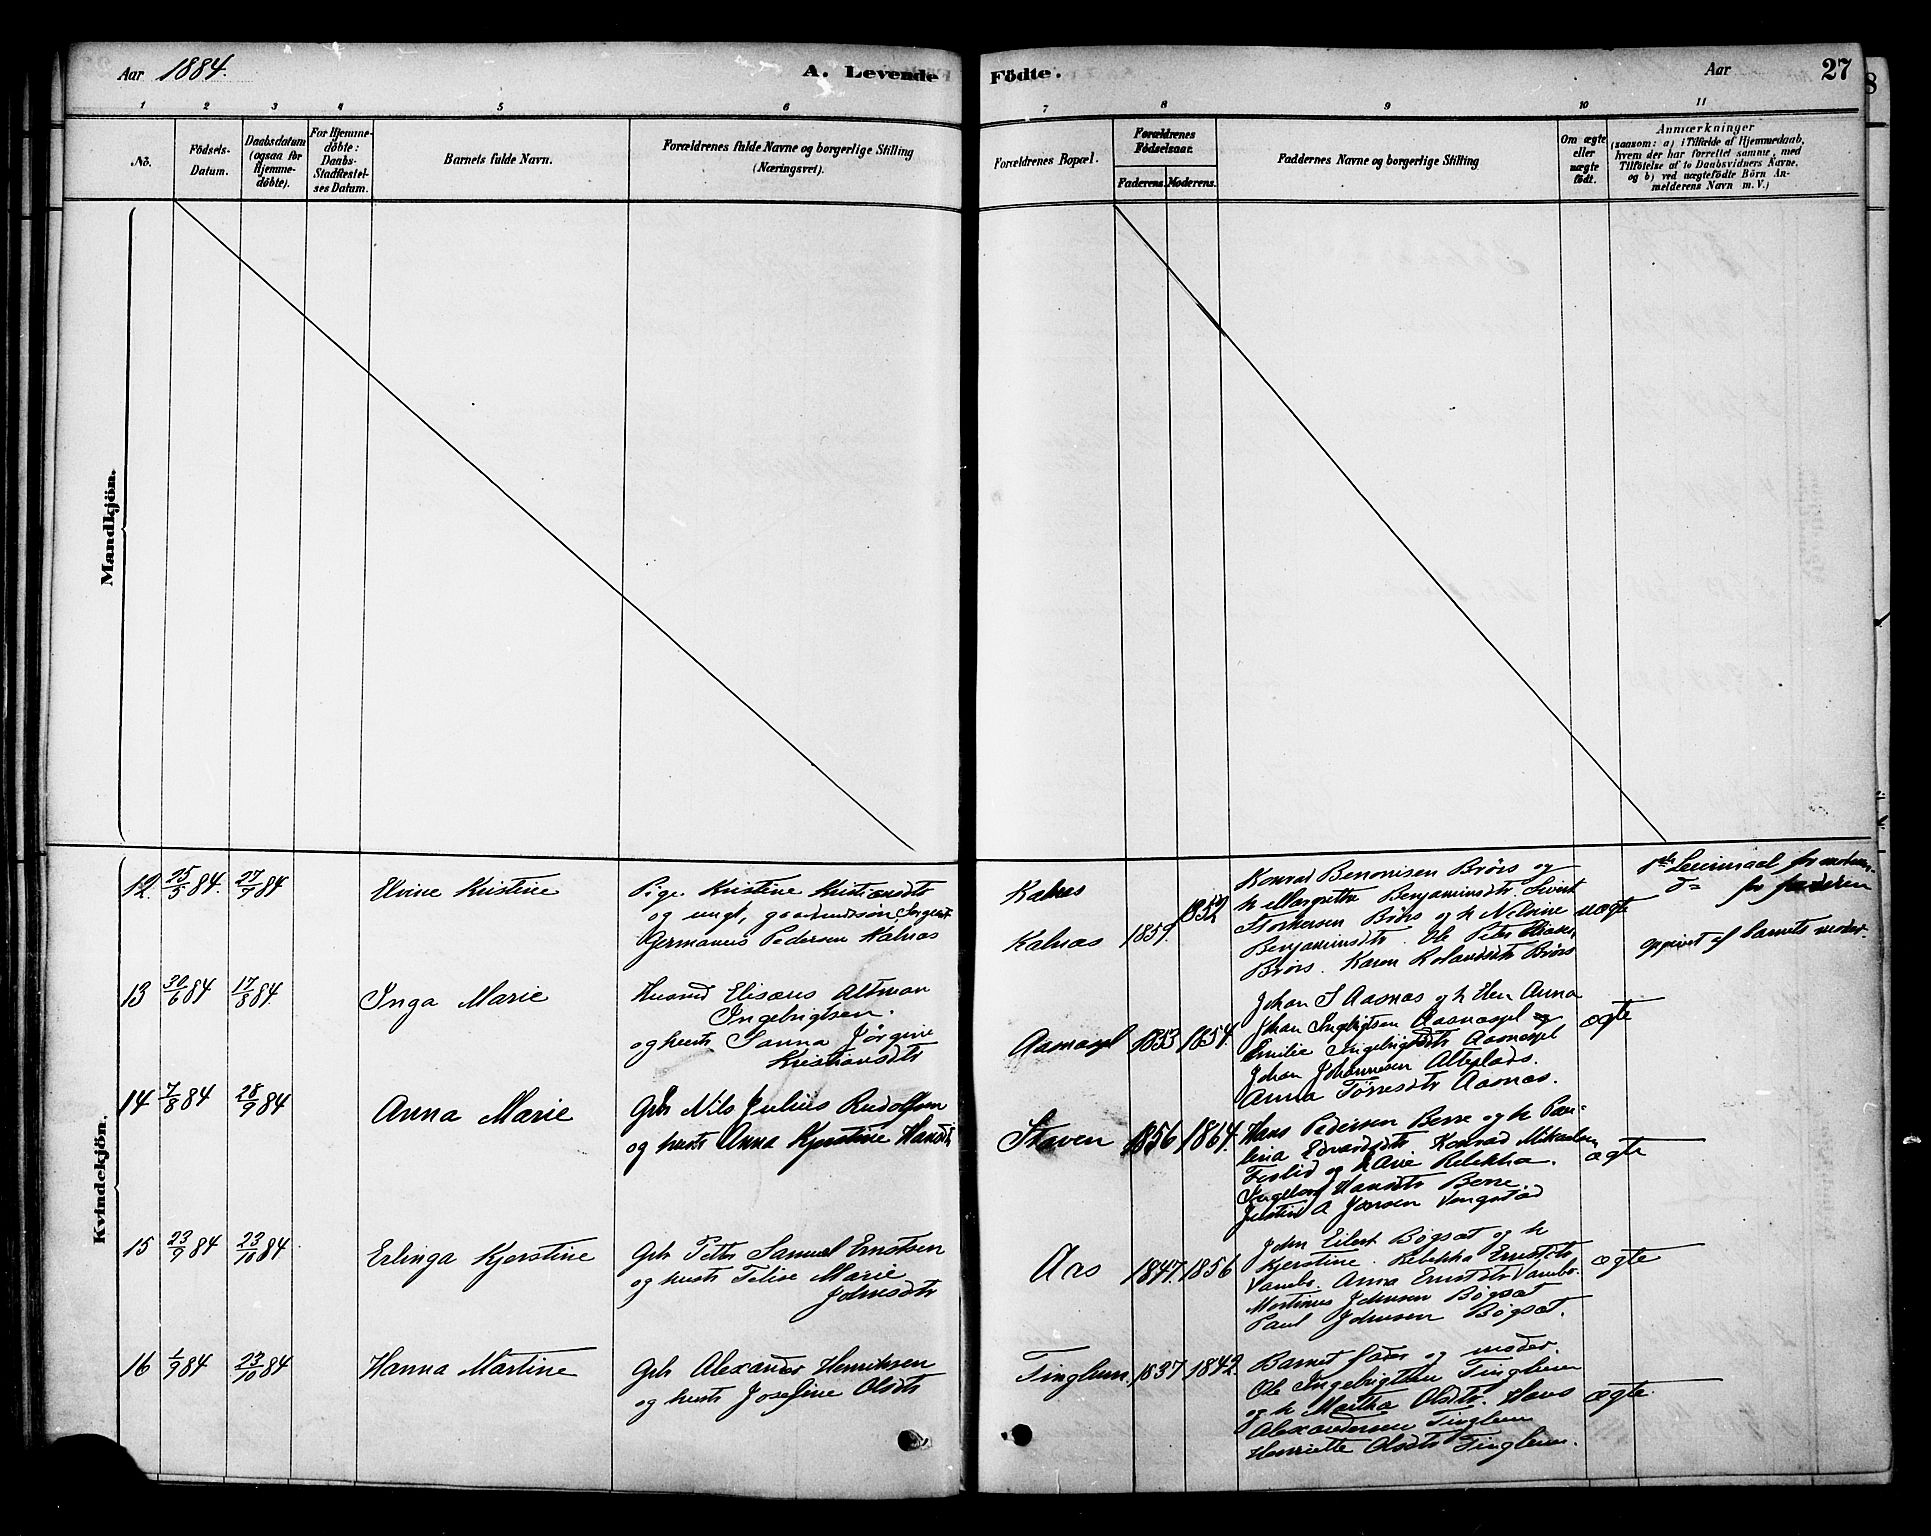 Aar 1884.
A. Levende Födte.
Aar
27
1 2 3 4 5 6 7 8 9 10 11
No.
Födsels-Datum.
Daabsdatum (ogsaa for Hjemme-döbte).
For Hjemme-döbte: Daabs-Stadfæstel-ses Datum.
Barnets fulde Navn.
Forældrenes fulde Navne og borgerlige Stilling
(Næringsvei).
Forældrenes Bopæl.
Forældrenes Födselsaar.
Faderens. Moderens.
Faddernes Navne og borgerlige Stilling
Om ægte eller uægte født.
Anmærkninger
(saasom: a) i Tilfælde af Hjemmedaab,
hvem der har forrettet samme, med
Tilføielse af to Daabsvidners Navne,
og b) ved uægtefödte Börn An-
melderens Navn m. V.)
Mandkjön.
Kvindekjön.
12. 25/5 84. 27/7 84
Elvine Kristine
Pige Kristine Kristiansdtr
og ungk, gaardmdssøn
Germanus Pedersen Kalnæs
Kalnæs
Kalnæs 1859. 1852
Konrad Benonisen Brørs og
h Margrethe Benjaminsdtr. Sivert
Storkersen Brørs og h Nelvine
Benjaminsdtr. Ole Peter
Brørs. Karen Rolandsdtr Brørs
uægte
1ste Leiermaal for moderen
do for faderen
opgivet af barnets moder.
13 30/6 84 17/8 84.
Inga Marie
Husmd Elisæus Altman
Ingebrigtsen.
og hustr Sanna Jørgine
Kristiansdtr
Aasnæspl 1853 1854.
Johan S Aasnæs og h Elen Anna
Johan Ingebrigtsen Aasnæspl og
Emilie Ingebrigtsdtr Aasnæspl
Johan Johannesen Alteplads.
Anna Tørresdtr Aasnæs.
ægte
14 7/8 84 28/9 84
Anna Marie
Gbr Nils Julius Rudolfsen
og hustr Anna Kjerstine Hansdtr
Staven 1856 1864.
Hans Pedersen Berre og h Pau-
lina Edvardsdtr Konrad Mikaelsen
og h Arie Rebekka.
Ingeborg Hansdtr Berre.
Justin A Jonsen Vengstad
ægte
15 23/9 84 23/10 84
Erlinga Kjerstine
Gbr Peter Samuel Ernstsen
og hustr Felise Marie
Johnsdtr
Ars 1847. 1856
John Eilert Bøgset og h
Kjerstine. Rebekka Ernstdtr
Vambo. Anna Ernstdtr Vambo.
Martinus Johnsen Bøgset
Paul Johnsen Bøgset.
ægte
16 1/9 84 23/10 84
Hanna Martine
Gbr Alexander Henriksen
og hustr Josefine Olsdtr
Tinglum. 1837 1842.
Barnet fader og moder.
Ole Ingebrigtsen Tinglum
og h Martha Olsdtr. Hans
Alexandersen Tinglum
Henriette Olsdtr Tinglum.
ægte.